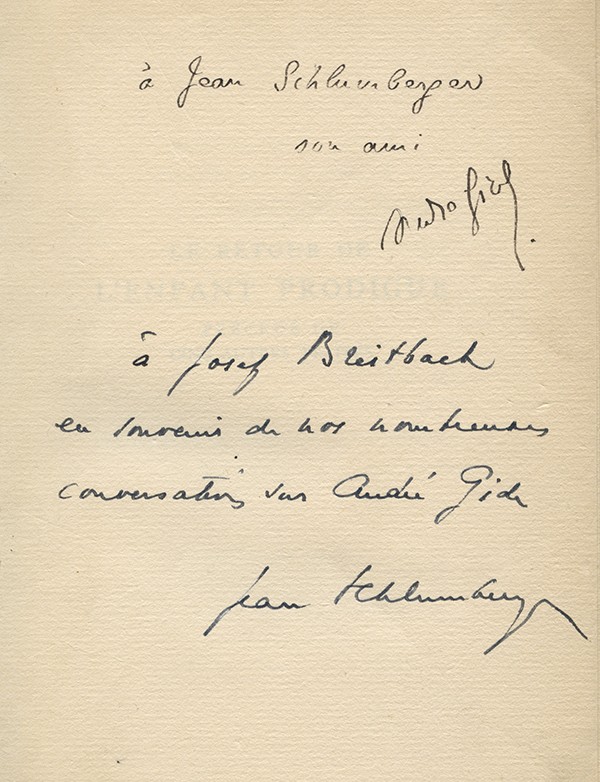 à Jean Schlumberger
son ami
André Gide.
LE RETOUR DE
L'ENFANT PRODIGUE
à Josef Breitbach
en souvenir de nos nombreuses
conversations sur André Gide
Jean Schlumberger